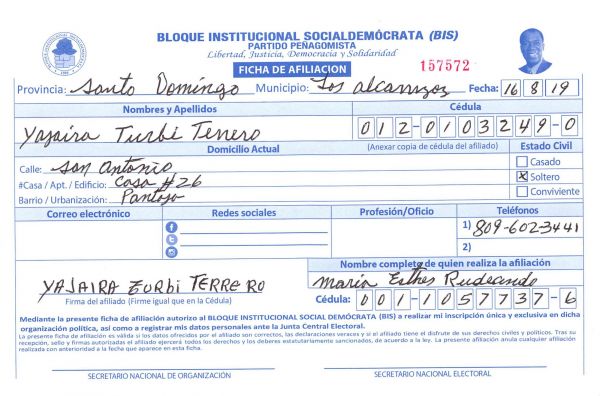 BLOQUE INSTITUCIONAL SOCIALDEMÓCRATA (BIS)
PARTIDO PEÑAGOMISTA
Libertad, Justicia, Democracia y Solidaridad
FICHA DE AFILIACION 157572
Provincia: Santo Domingo Municipio: Los alcarrizos Fecha: 16 8 19
Nombres y Apellidos Cédula
Yajaira Turbi Terrero 012-0103249-0
Domicilio Actual (Anexar copia de cédula del afiliado) Estado Civil
Calle: San Antonio Casado
#Casa / Apt. / Edificio: Casa #26 X Soltero
Barrio / Urbanización: Pantoja Conviviente
Correo electrónico Redes sociales Profesión/Oficio Teléfonos
1) 809-602-3441
2)
Nombre completo de quien realiza la afiliación
YAJAIRA TURBI TERRERO María Esther
Firma del afiliado (Firme igual que en la Cédula) Cédula: 001-1057737-6
Mediante la presente ficha de afiliación autorizo al BLOQUE INSTITUCIONAL SOCIAL DEMÓCRATA (BIS) a realizar mi inscripción única y exclusiva en dicha
organización política, así como a registrar mis datos personales ante la Junta Central Electoral.
La presente ficha de afiliación es válida si los datos ofrecidos por el afiliado son correctos, las declaraciones veraces y si el afiliado tiene el disfrute de sus derechos civiles y políticos. Tras su
recepción, sello y firmas autorizadas el afiliado ejercerá todos los derechos y los deberes estatutariamente sancionados, de acuerdo a la ley. La presente afiliación anula cualquier afiliación
realizada con anterioridad a la fecha que aparece en esta ficha.
SECRETARIO NACIONAL DE ORGANIZACIÓN SECRETARIO NACIONAL ELECTORAL